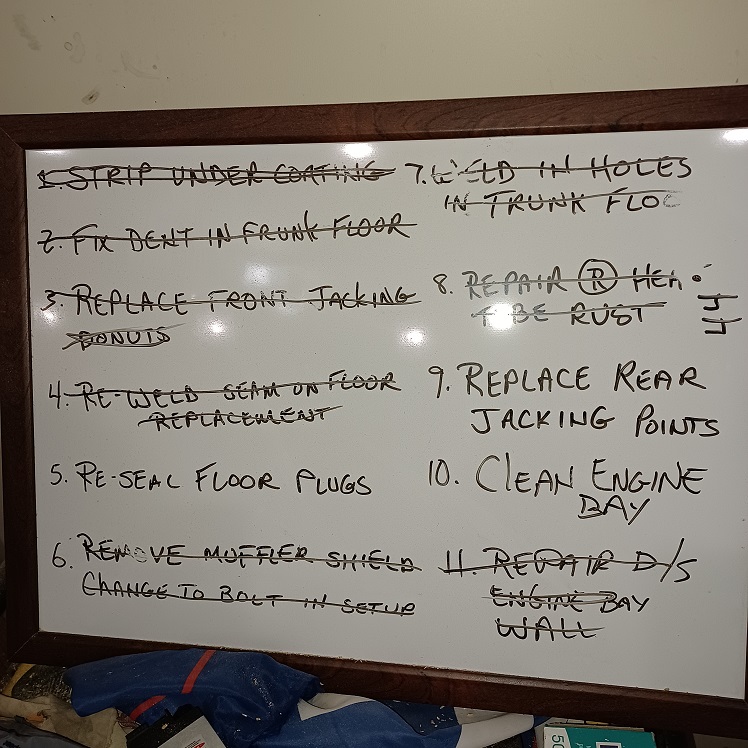 1. STRIP UNDER COATING
2. FIX DENT IN TRUNK FLOOR
3. REPLACE FRONT JACKING
DONUTS
4. RE-WELD SEAM ON FLOOR
REPLACEMENT
5. RE-SEAL FLOOR PLUGS
6. REMOVE MUFFLER SHIELD
CHANGE TO BOLT IN SETUP
7. WELD IN HOLES
IN TRUNK FLOO
8. REPAIR Ⓡ
BE RUST
9. REPLACE REAR
JACKING POINTS
10. CLEAN ENGINE
BAY
11. REPAIR D/S
ENGINE BAY
WALL